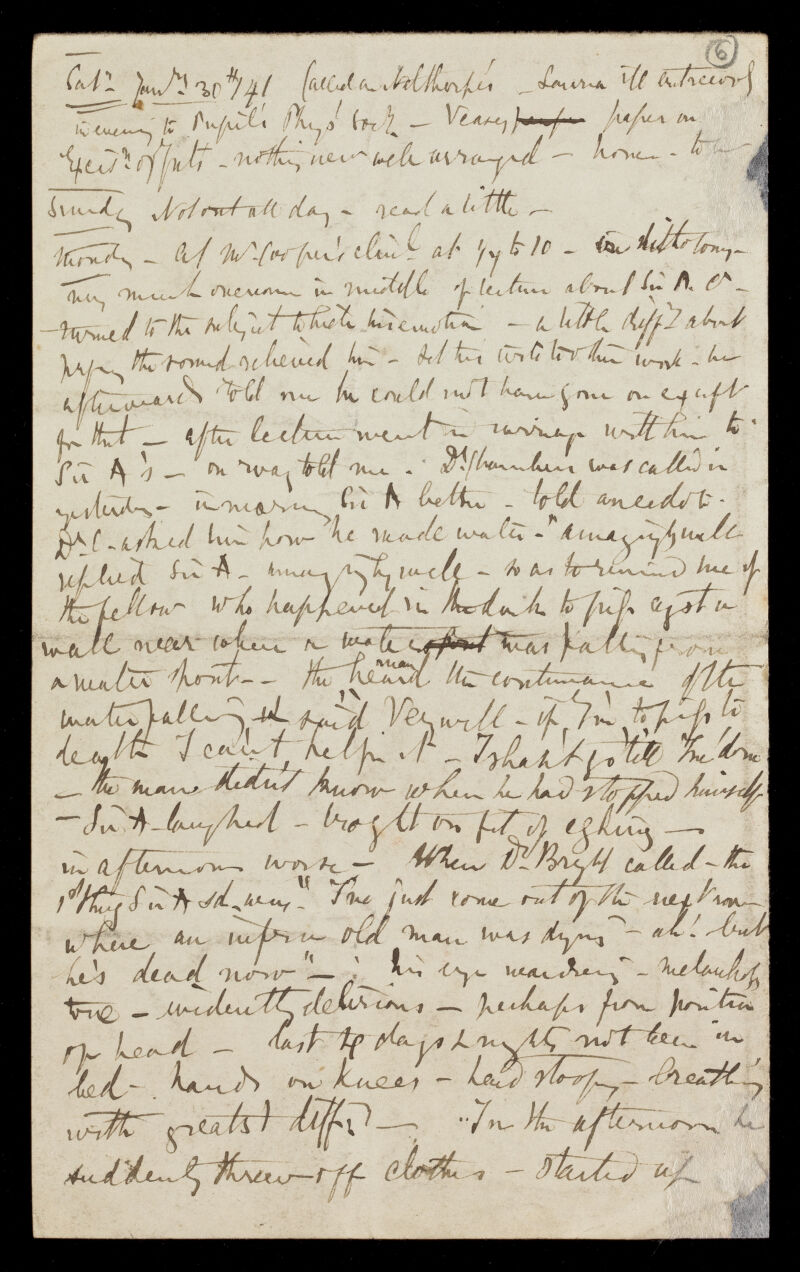 6
Saty. Jany. 30th/41 Called on Nelthorpe's - Louisa ill
in evening to Pupil's Phys' Soc'y - Veasey paper on
nothing new well arranged - home - to
Sunday Not out all day - read a little -
Monday - At Mr Cooper's clinl. at 1/4 to 10 -
very much overcome in middle of lecture about Sir A. C -
turned to the subject to hide his emotion - a little diffy about
the round relieved him - set his to work - he
afterwards told me he could not have gone on except
for that - after lecture went in carriage with him to
Sir A's - on way told me : Dr Chambers was called in
yesterday - in morning Sir A better - told anecdote -
Dr C - asked him how he made water - "amazingly well
replied Sir A - amazingly well - so as to remind me of
the fellow who happened in the dark to piss agst a
wall near where a water spout was falling from
a water spout - - the man heard the continuance of the
water falling & said Very well - if I'm to piss to
death I can't help it - I shan't go till I've done
- the man didn't know when he had stopped himself
- Sir A laughed - brought on fit of coughing -
in afternoon worse - When Dr Bright called - the
1st thing Sir A sd. was "I've just come out of the next room
where an old man was dying - ah! but
he's dead now" - : his eye wandering - melancholy
tone - evidently delirious - perhaps from position
of head - last 4 days & nights not been in
bed - hands on knees - head stooping - breathing
with greatest diffy - In the afternoon he
suddenly threw off clothes - started up